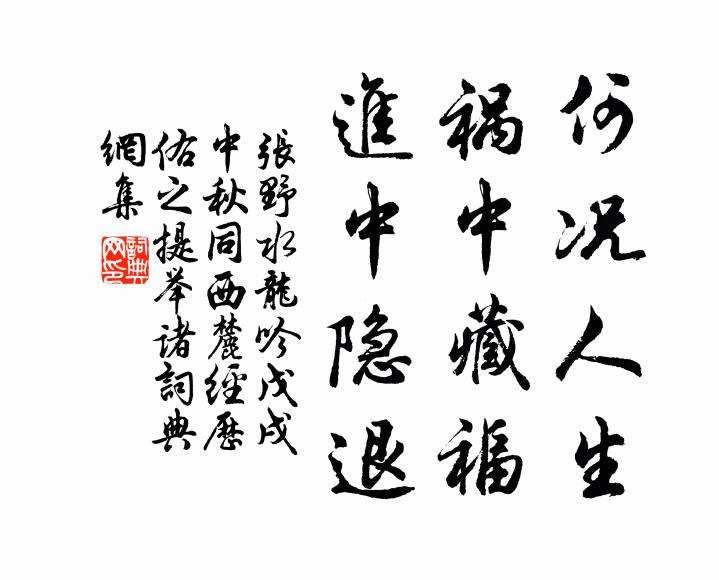 何况人生
祸中藏福
進中隐退
張野水龍吟戊戌
中秋同西麓經歷
佑之提举诸詞典
網集
詞典网印